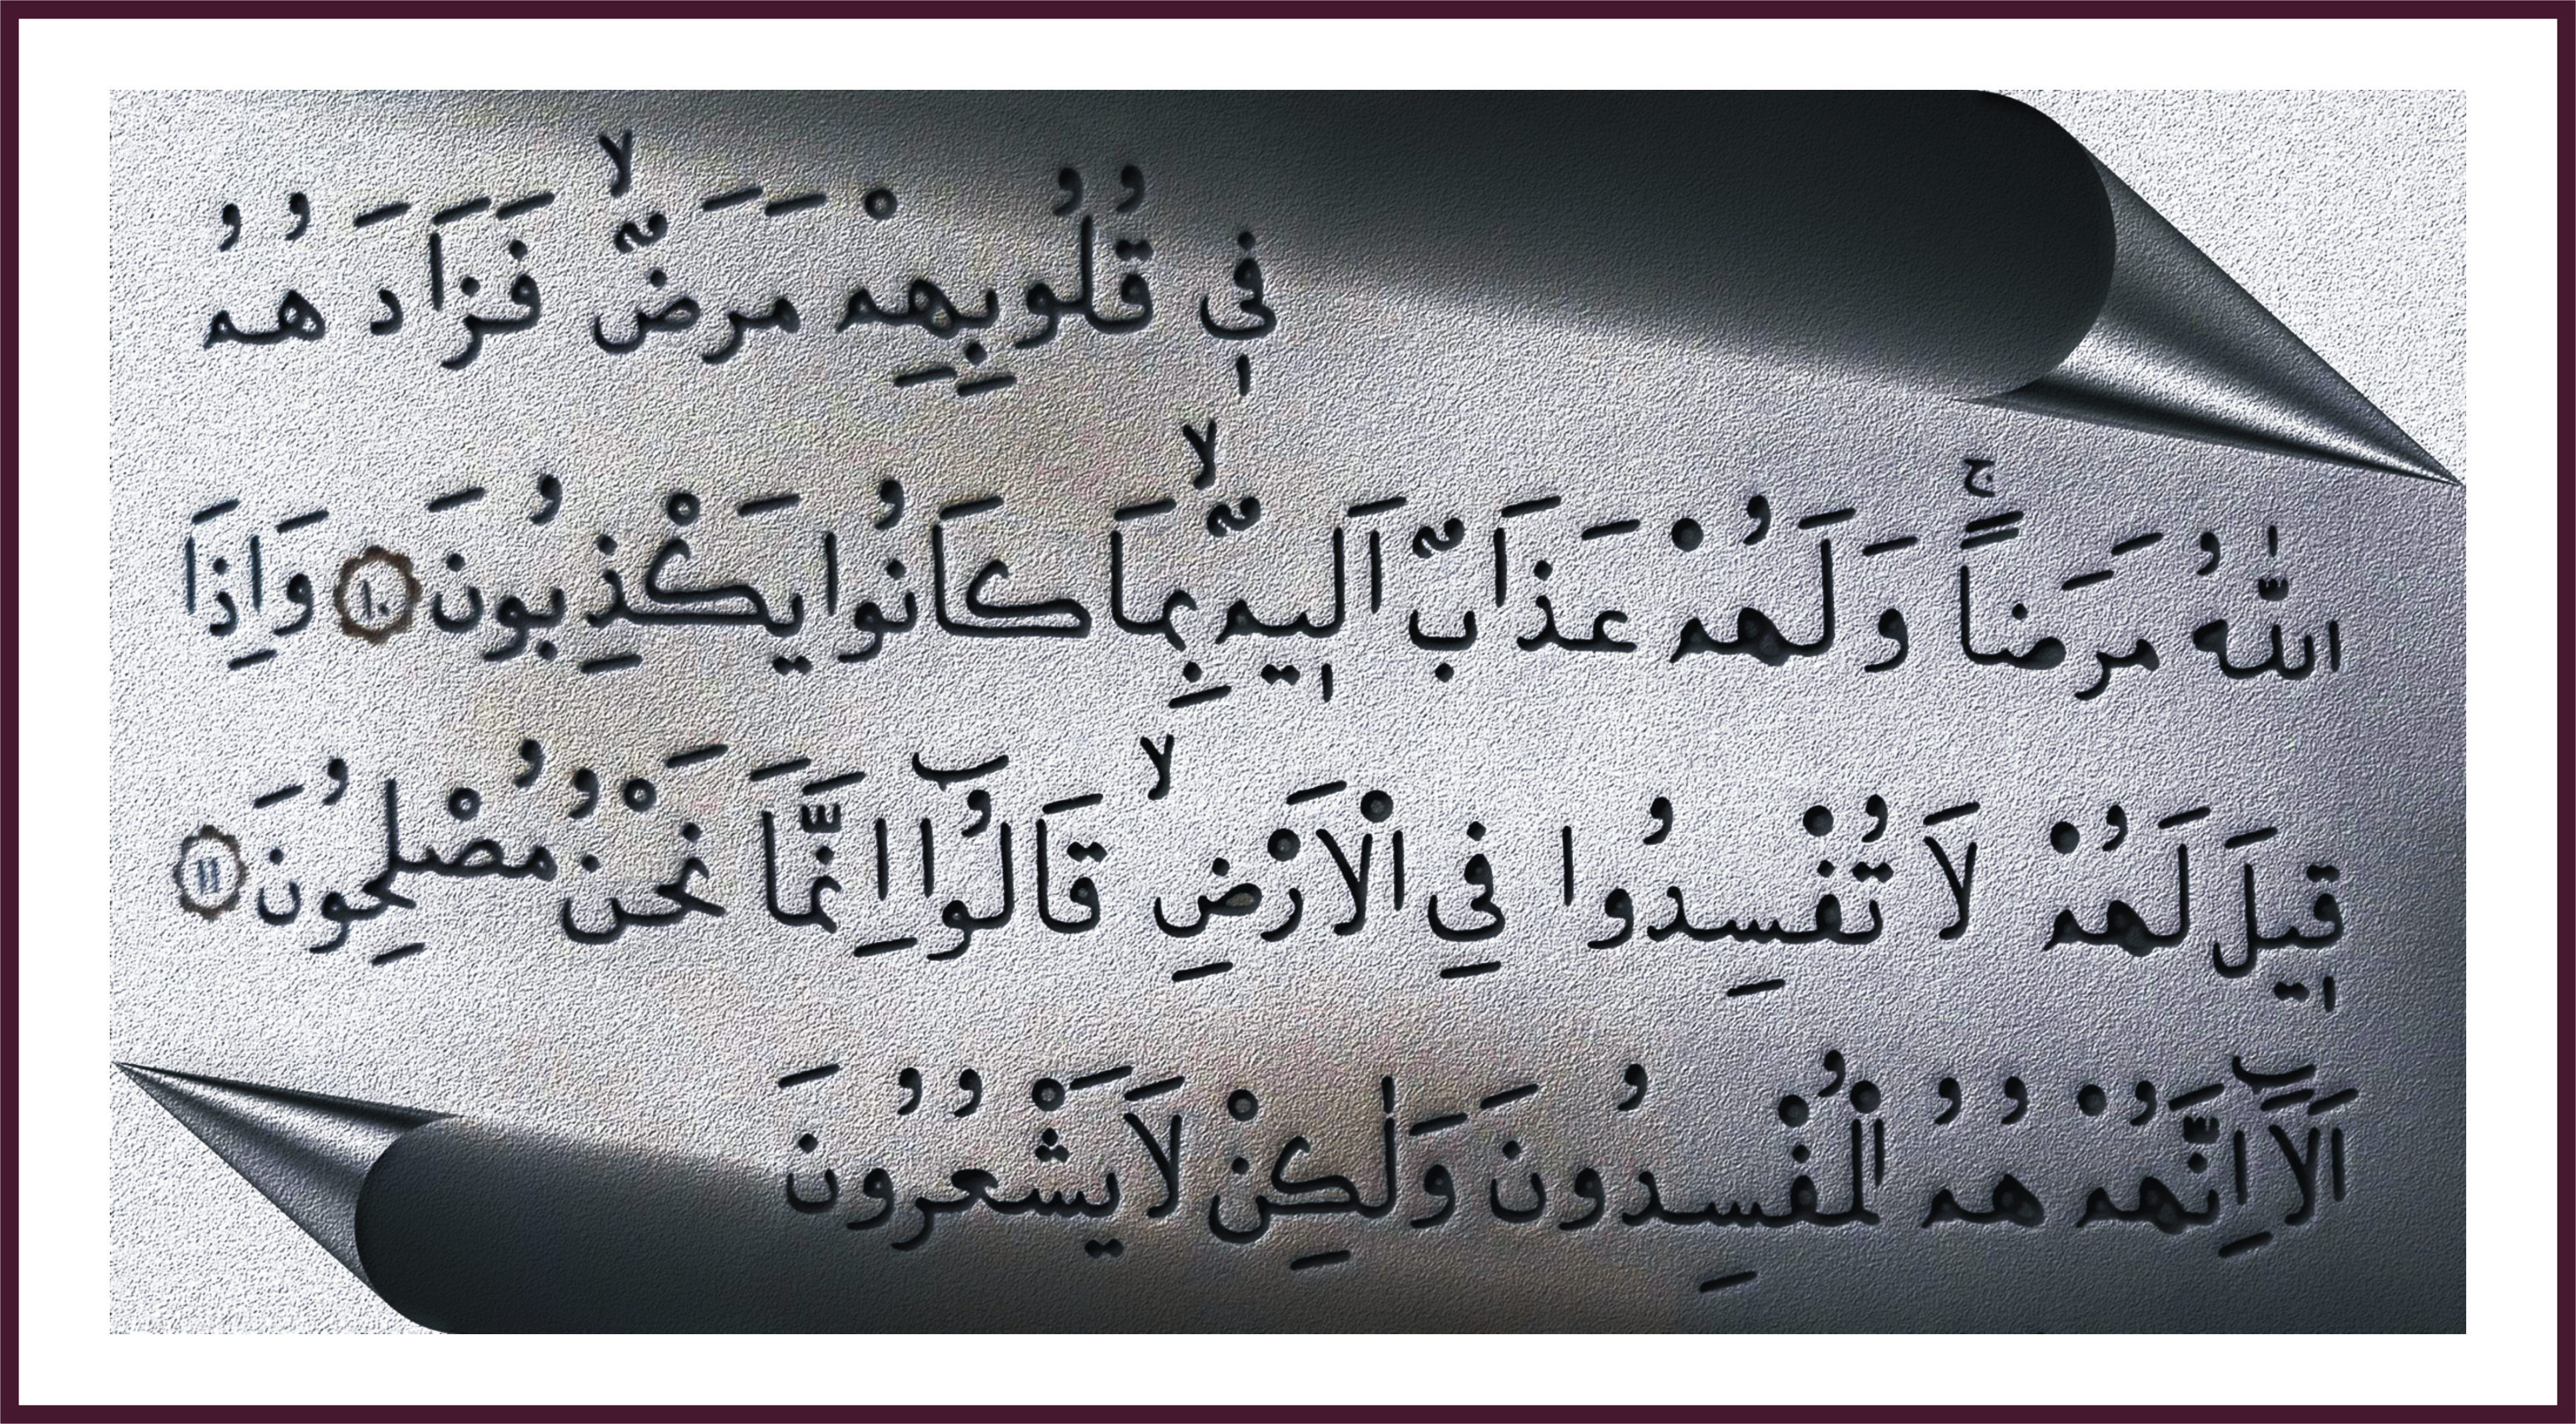 فٖي قُلُوبِهِمْ مَرَضٌۙ فَزَادَهُمُ
اللّٰهُ مَرَضاًۚ وَلَهُمْ عَذَابٌ اَلٖيمٌۙ بِمَا كَانُوا يَكْذِبُونَ ١٠ وَاِذَا
قٖيلَ لَهُمْ لَا تُفْسِدُوا فِي الْاَرْضِۙ قَالُٓوا اِنَّمَا نَحْنُ مُصْلِحُونَ ١١
اَلَٓا اِنَّهُمْ هُمُ الْمُفْسِدُونَ وَلٰكِنْ لَا يَشْعُرُونَ